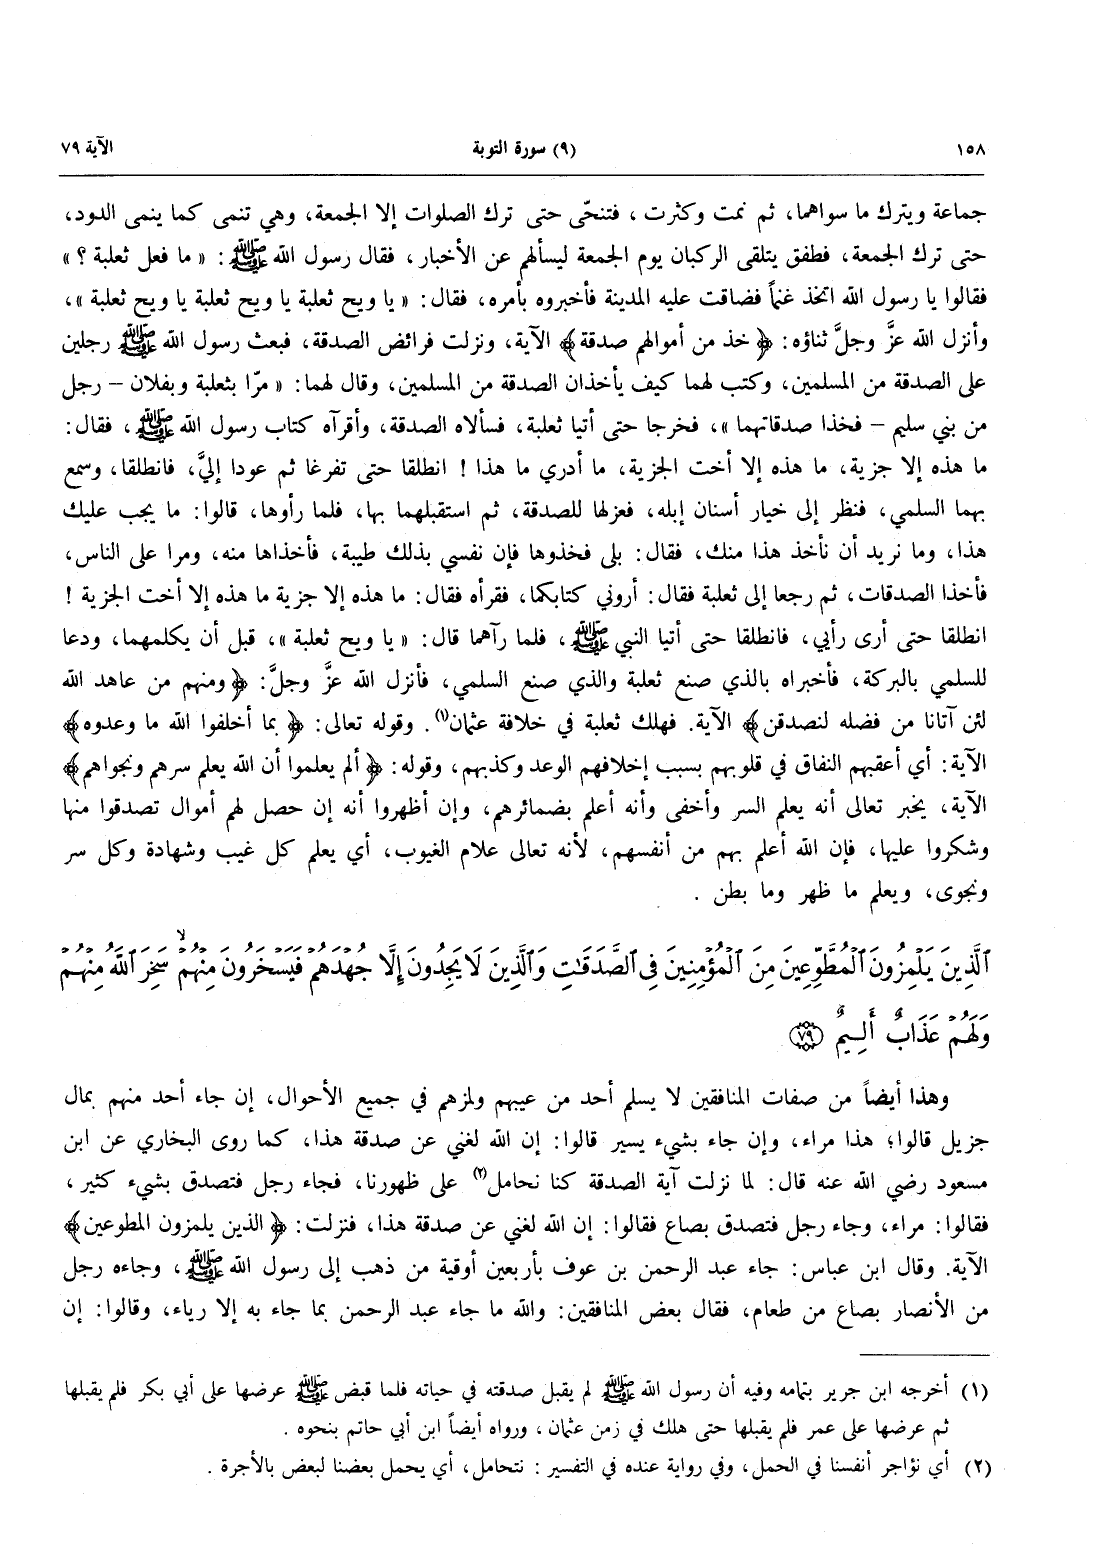 ١٥٨ (٩) سورة التوبة الآية ٧٩
جماعة ويترك ما سواهما، ثم نمت وكثرت ، فتنحّى حتى ترك الصلوات إلا الجمعة، وهي تنمى كما ينمى الدود،
حتى ترك الجمعة، فطفق يتلقى الركبان يوم الجمعة ليسألهم عن الأخبار، فقال رسول الله ﷺ : « ما فعل ثعلبة ؟ »
فقالوا يا رسول الله اتخذ غنماً فضاقت عليه المدينة فأخبروه بأمره، فقال: « يا ويح ثعلبة يا ويح ثعلبة يا ويح ثعلبة »،
وأنزل الله عزَّ وجلَّ ثناؤه: ﴿ خذ من أموالهم صدقة﴾ الآية، ونزلت فرائض الصدقة، فبعث رسول الله ﷺ رجلين
على الصدقة من المسلمين، وكتب لهما كيف يأخذان الصدقة من المسلمين، وقال لهما: « مرّا بثعلبة وبفلان – رجل
من بني سليم – فخذا صدقاتهما »، فخرجا حتى أتيا ثعلبة، فسألاه الصدقة، وأقرآه كتاب رسول الله ﷺ، فقال:
ما هذه إلا جزية، ما هذه إلا أخت الجزية، ما أدري ما هذا ! انطلقا حتى تفرغا ثم عودا إليَّ، فانطلقا، وسمع
بهما السلمي، فنظر إلى خيار أسنان إبله، فعزلها للصدقة، ثم استقبلهما بها، فلما رأوها، قالوا: ما يجب عليك
هذا، وما نريد أن نأخذ هذا منك، فقال: بلى فخذوها فإن نفسي بذلك طيبة، فأخذاها منه، ومرا على الناس،
فأخذا الصدقات، ثم رجعا إلى ثعلبة فقال: أروني كتابكما، فقرأه فقال: ما هذه إلا جزية ما هذه إلا أخت الجزية !
انطلقا حتى أرى رأيي، فانطلقا حتى أتيا النبي ﷺ، فلما رآهما قال: « يا ويح ثعلبة »، قبل أن يكلمهما، ودعا
للسلمي بالبركة، فأخبراه بالذي صنع ثعلبة والذي صنع السلمي، فأنزل الله عزَّ وجلَّ: ﴿ ومنهم من عاهد الله
لئن آتانا من فضله لنصدقن﴾ الآية. فهلك ثعلبة في خلافة عثمان(١). وقوله تعالى: ﴿ بما أخلفوا الله ما وعدوه﴾
الآية: أي أعقبهم النفاق في قلوبهم بسبب إخلافهم الوعد وكذبهم، وقوله: ﴿ ألم يعلموا أن الله يعلم سرهم ونجواهم﴾
الآية، يخبر تعالى أنه يعلم السر وأخفى وأنه أعلم بضمائرهم، وإن أظهروا أنه إن حصل لهم أموال تصدقوا منها
وشكروا عليها، فإن الله أعلم بهم من أنفسهم، لأنه تعالى علام الغيوب، أي يعلم كل غيب وشهادة وكل سر
ونجوى، ويعلم ما ظهر وما بطن .
ٱلَّذِينَ يَلْمِزُونَ ٱلْمُطَّوِّعِينَ مِنَ ٱلْمُؤْمِنِينَ فِى ٱلصَّدَقَـٰتِ وَٱلَّذِينَ لَا يَجِدُونَ إِلَّا جُهْدَهُمْ فَيَسْخَرُونَ مِنْهُمْ ۙ سَخِرَ ٱللَّهُ مِنْهُمْ
وَلَهُمْ عَذَابٌ أَلِيمٌ ٧٩
وهذا أيضاً من صفات المنافقين لا يسلم أحد من عيبهم ولمزهم في جميع الأحوال، إن جاء أحد منهم بمال
جزيل قالوا: هذا مراء، وإن جاء بشيء يسير قالوا: إن الله لغني عن صدقة هذا، كما روى البخاري عن ابن
مسعود رضي الله عنه قال: لما نزلت آية الصدقة كنا نحامل(٢) على ظهورنا، فجاء رجل فتصدق بشيء كثير،
فقالوا: مراء، وجاء رجل فتصدق بصاع فقالوا: إن الله لغني عن صدقة هذا، فنزلت: ﴿ الذين يلمزون المطوعين﴾
الآية. وقال ابن عباس: جاء عبد الرحمن بن عوف بأربعين أوقية من ذهب إلى رسول الله ﷺ، وجاءه رجل
من الأنصار بصاع من طعام، فقال بعض المنافقين: والله ما جاء عبد الرحمن بما جاء به إلا رياء، وقالوا: إن
(١) أخرجه ابن جرير بتمامه وفيه أن رسول الله ﷺ لم يقبل صدقته في حياته فلما قبض ﷺ عرضها على أبي بكر فلم يقبلها
ثم عرضها على عمر فلم يقبلها حتى هلك في زمن عثمان ، ورواه أيضاً ابن أبي حاتم بنحوه .
(٢) أي نؤاجر أنفسنا في الحمل، وفي رواية عنده في التفسير : نتحامل، أي يحمل بعضنا لبعض بالأجرة .